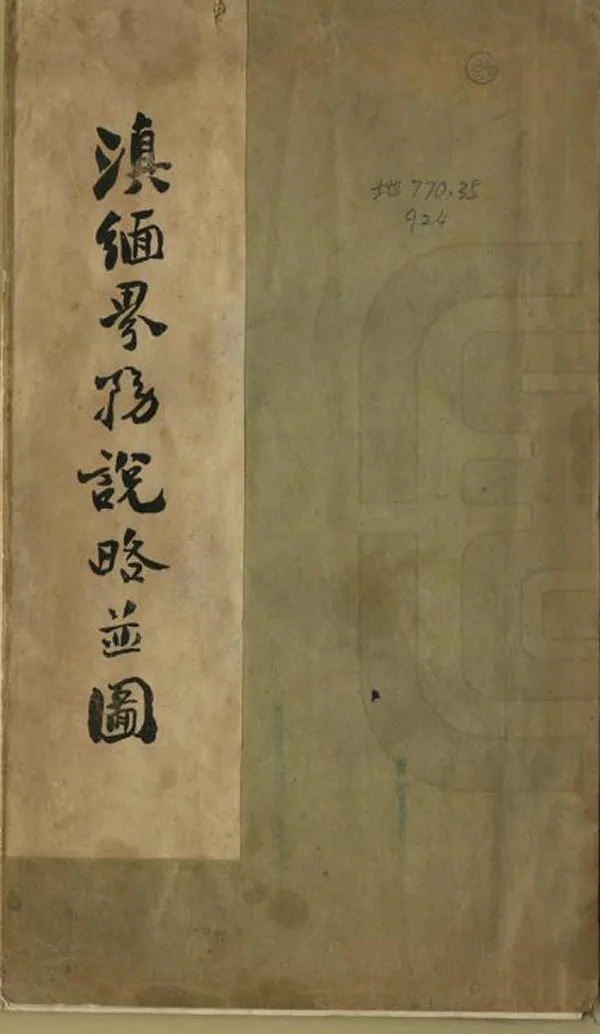 滇緬界務說略並圖
地 770.35
924